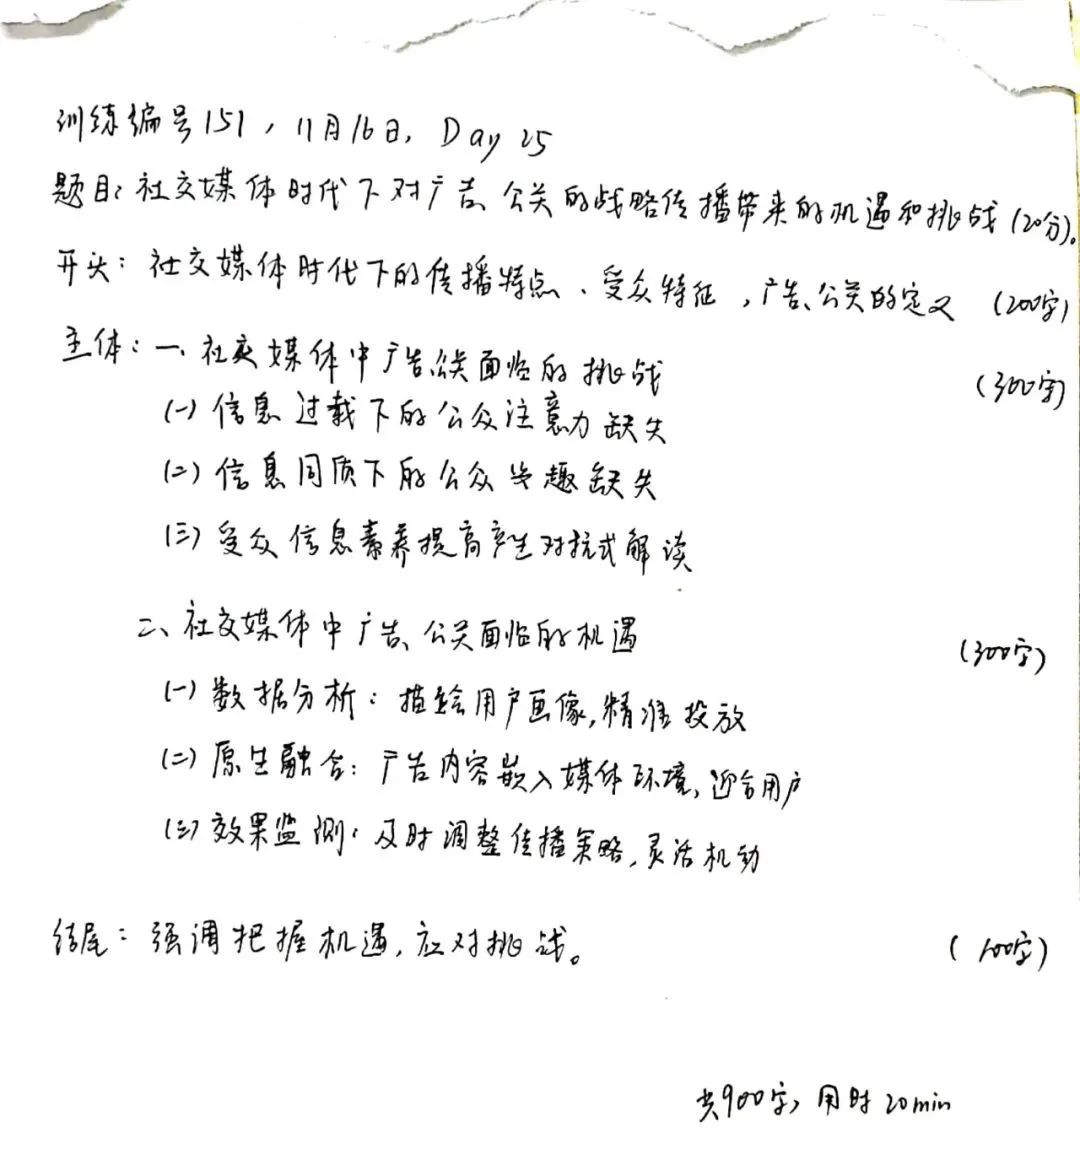 训练编号151，11月16日，Day 25
题目：社交媒体时代下对广告、公关的战略传播带来的机遇和挑战（20分）。
开头：社交媒体时代下的传播特点、受众特征，广告、公关的定义（200字）
主体：一、社交媒体中广告、公关面临的挑战（300字）
（一）信息过载下的公众注意力缺失
（二）信息同质下的公众兴趣缺失
（三）受众信息素养提高产生对抗式解读
二、社交媒体中广告、公关面临的机遇（300字）
（一）数据分析：描绘用户画像，精准投放
（二）原生融合：广告内容嵌入媒体环境，迎合用户
（三）效果监测：及时调整传播策略，灵活机动
结尾：强调把握机遇，应对挑战。（100字）
共900字，用时20min